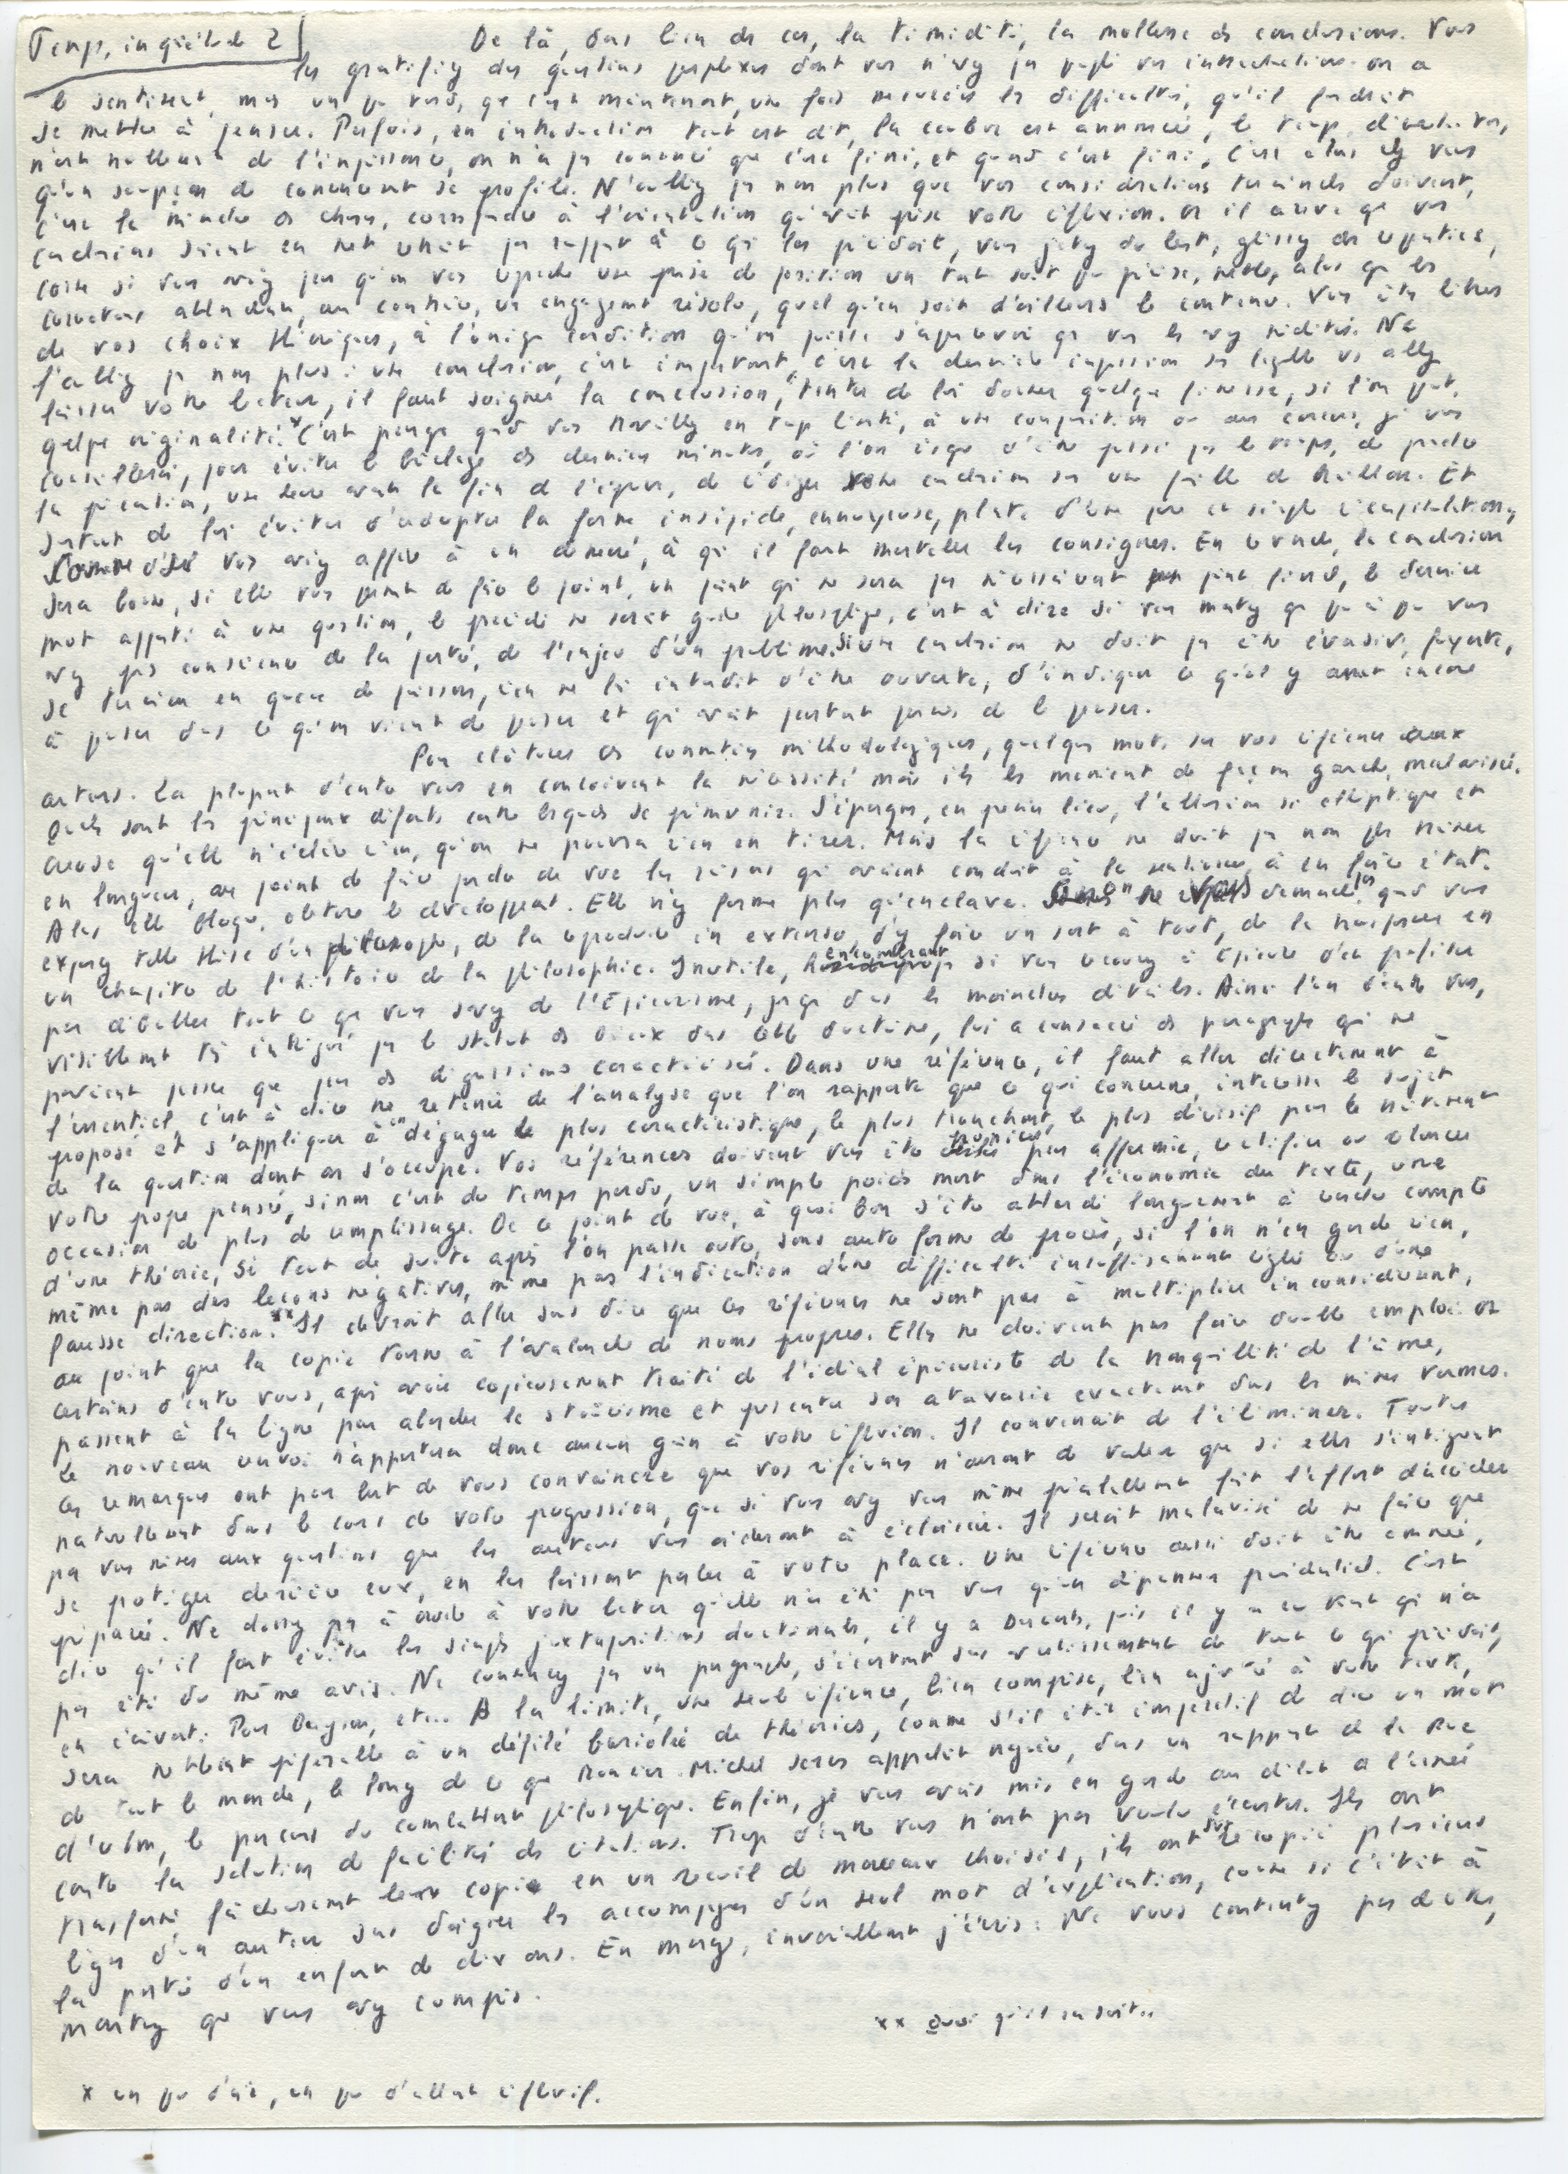 Temps, inquiétude 2
De là, dans bien des cas, la timidité, la mollesse des conclusions. Vous
les gratifiez des questions perplexes dont vous n'avez pas vos introductions. on a
le sentiment, mais un peu tard, que c'est maintenant, une fois les difficultés, qu'il faudrait
se mettre à penser. Parfois, en introduction tout est dit, la couleur est annoncée, le temps,
n'est nullement de l'impression, on n'a pas commencé que c'est fini, et quand c'est fini, c'est alors
qu'un soupçon de commencement se profile. N'oubliez pas non plus que vos considérations terminales doivent,
c'est la moindre des choses, correspondre à l'orientation qu'avait prise votre réflexion. or il arrive que vos
conclusions soient en net retrait par rapport à ce qui les précédait, vous jetez du lest, glissez des
comme si vous aviez peur qu'on vous reproche une prise de position un tant soit peu précise, nette, alors que les
correcteurs attendent, au contraire, un engagement résolu, quel qu'en soit d'ailleurs le contenu. Vous êtes libres
de vos choix théoriques, à l'unique condition qu'on puisse s'apercevoir que vous les avez médités. Ne
l'oubliez pas non plus : une conclusion, c'est important, c'est la dernière impression sur laquelle vs allez
laisser votre lecteur, il faut soigner la conclusion, tenter de lui donner quelque finesse, si l'on peut,
quelque originalité.* C'est pourquoi quand vous travaillez en temps limité, à une composition ou au concours, je vous
conseillerai, pour éviter le bâclage des dernières minutes, où l'on risque d'être pressé par le temps, de prendre
la précaution, une heure avant la fin de l'épreuve, de rédiger votre conclusion sur une feuille de brouillon. Et
surtout de lui éviter d'adopter la forme insipide, ennuyeuse, plate d'une pure et simple récapitulation,
comme si vous aviez affaire à un demeuré, à qui il faut marteler les consignes. En revanche, la conclusion
sera bonne, si elle vous permet de faire le point, un point qui ne sera pas nécessairement point final, le dernier
mot apporté à une question, le procédé ne serait guère philosophique, c'est à dire si vous montrez que peu à peu vous
avez pris conscience de la portée, de l'enjeu d'un problème. Si une conclusion ne doit pas être évasive, fuyante,
se terminer en queue de poisson, rien ne lui interdit d'être ouverte, d'indiquer ce qu'il y aurait encore
à penser dans ce qu'on vient de penser et qui avait pourtant permis de le penser.
Pour clôturer ces conseils méthodologiques, quelques mots sur vos références aux
auteurs. La plupart d'entre vous en conçoivent la nécessité mais ils les manient de façon gauche, malavisée.
Quels sont les principaux défauts contre lesquels se prémunir. S'épargner, en premier lieu, l'allusion si elliptique et
creuse qu'elle n'éclaire rien, qu'on ne pourra rien en tirer. Mais la référence ne doit pas non plus traîner
en longueur, au point de faire perdre de vue les raisons qui avaient conduit à la à en faire état.
Alors elle bloque, obture le développement. Elle n'y forme plus qu'enclave. On ne vous demande pas, quand vous
exposez telle thèse d'un philosophe, de la reproduire in extenso, d'y faire un sort à tout, de la transformer en
un chapitre de l'histoire de la philosophie. Inutile, encombrant si vous recourez à Epicure d'en profiter
pour déballer tout ce que vous savez de l'Epicurisme, jusque dans les moindres détails. Ainsi l'un d'entre vous,
visiblement très intrigué par le statut des Dieux dans cette doctrine, lui a consacré des paragraphes qui ne
pouvaient passer que pour des digressions caractérisées. Dans une référence, il faut aller directement à
l'essentiel, c'est à dire ne retenir de l'analyse que l'on rapporte que ce qui concerne, intéresse le sujet
proposé et s'appliquer à en dégager le plus caractéristique, le plus tranchant, le plus décisif pour le traitement
de la question dont on s'occupe. Vos références doivent vous être propices pour affermir, rectifier ou relancer
votre propre pensée, sinon c'est du temps perdu, un simple poids mort dans l'économie du texte, une
occasion de plus de remplissage. De ce point de vue, à quoi bon s'être attardé longuement à rendre compte
d'une théorie, si tout de suite après l'on passe outre, sans autre forme de procès, si l'on n'en garde rien,
même pas des leçons négatives, même pas l'indication d'une difficulté insuffisamment réglée ou d'une
fausse direction.** Il devrait aller sans dire que les références ne sont pas à multiplier inconsidérément,
au point que la copie tourne à l'avalanche de noms propres. Elles ne doivent pas faire double emploi. or
certains d'entre vous, après avoir copieusement traité de l'idéal épicuriste de la tranquillité de l'âme,
passent à la ligne pour aborder le stoïcisme et présenter son ataraxie exactement dans les mêmes termes.
Ce nouveau renvoi n'apportera donc aucun gain à votre réflexion. Il convenait de l'éliminer. Toutes
ces remarques ont pour but de vous convaincre que vos références n'auront de valeur que si elles s'intègrent
naturellement dans le cours de votre progression, que si vous avez vous même préalablement fait l'effort d'accéder
par vous mêmes aux questions que les auteurs vous aideront à éclaircir. Il serait malavisé de ne faire que
se protéger derrière eux, en les laissant parler à votre place. Une référence aussi doit être amenée,
préparée. Ne donnez pas à croire à votre lecteur qu'elle n'a été pour vous qu'un dépannage providentiel. C'est
dire qu'il faut éviter les simples juxtapositions doctrinales, il y a Descartes, puis il y a eu Kant qui n'a
pas été du même avis. Ne commencez pas un paragraphe, s'écartant sans avertissement de tout ce qui précédait,
en écrivant : Pour Bergson, etc... A la limite, une seule référence, bien comprise, bien ajustée à votre texte,
sera nettement préférable à un défilé bariolé de théories, comme s'il était impératif de dire un mot
de tout le monde, le long de ce que Monsieur Michel Serres appelait naguère, dans un rapport de la Rue
d'Ulm, le parcours du combattant philosophique. Enfin, je vous avais mis en garde au début de l'année
contre la solution de facilité des citations. Trop d'entre vous n'ont pas voulu écouter. Ils ont
transformé fâcheusement leur copie en un recueil de morceaux choisis, ils ont recopié plusieurs
lignes d'un auteur sans daigner les accompagner d'un seul mot d'explication, comme si c'était à
la portée d'un enfant de dix ans. En marge, invariablement j'écris : Ne vous contentez pas de citer,
montrez que vous avez compris.
** Quoi qu'il en soit..
* un peu d'air, un peu d'allant réflexif.